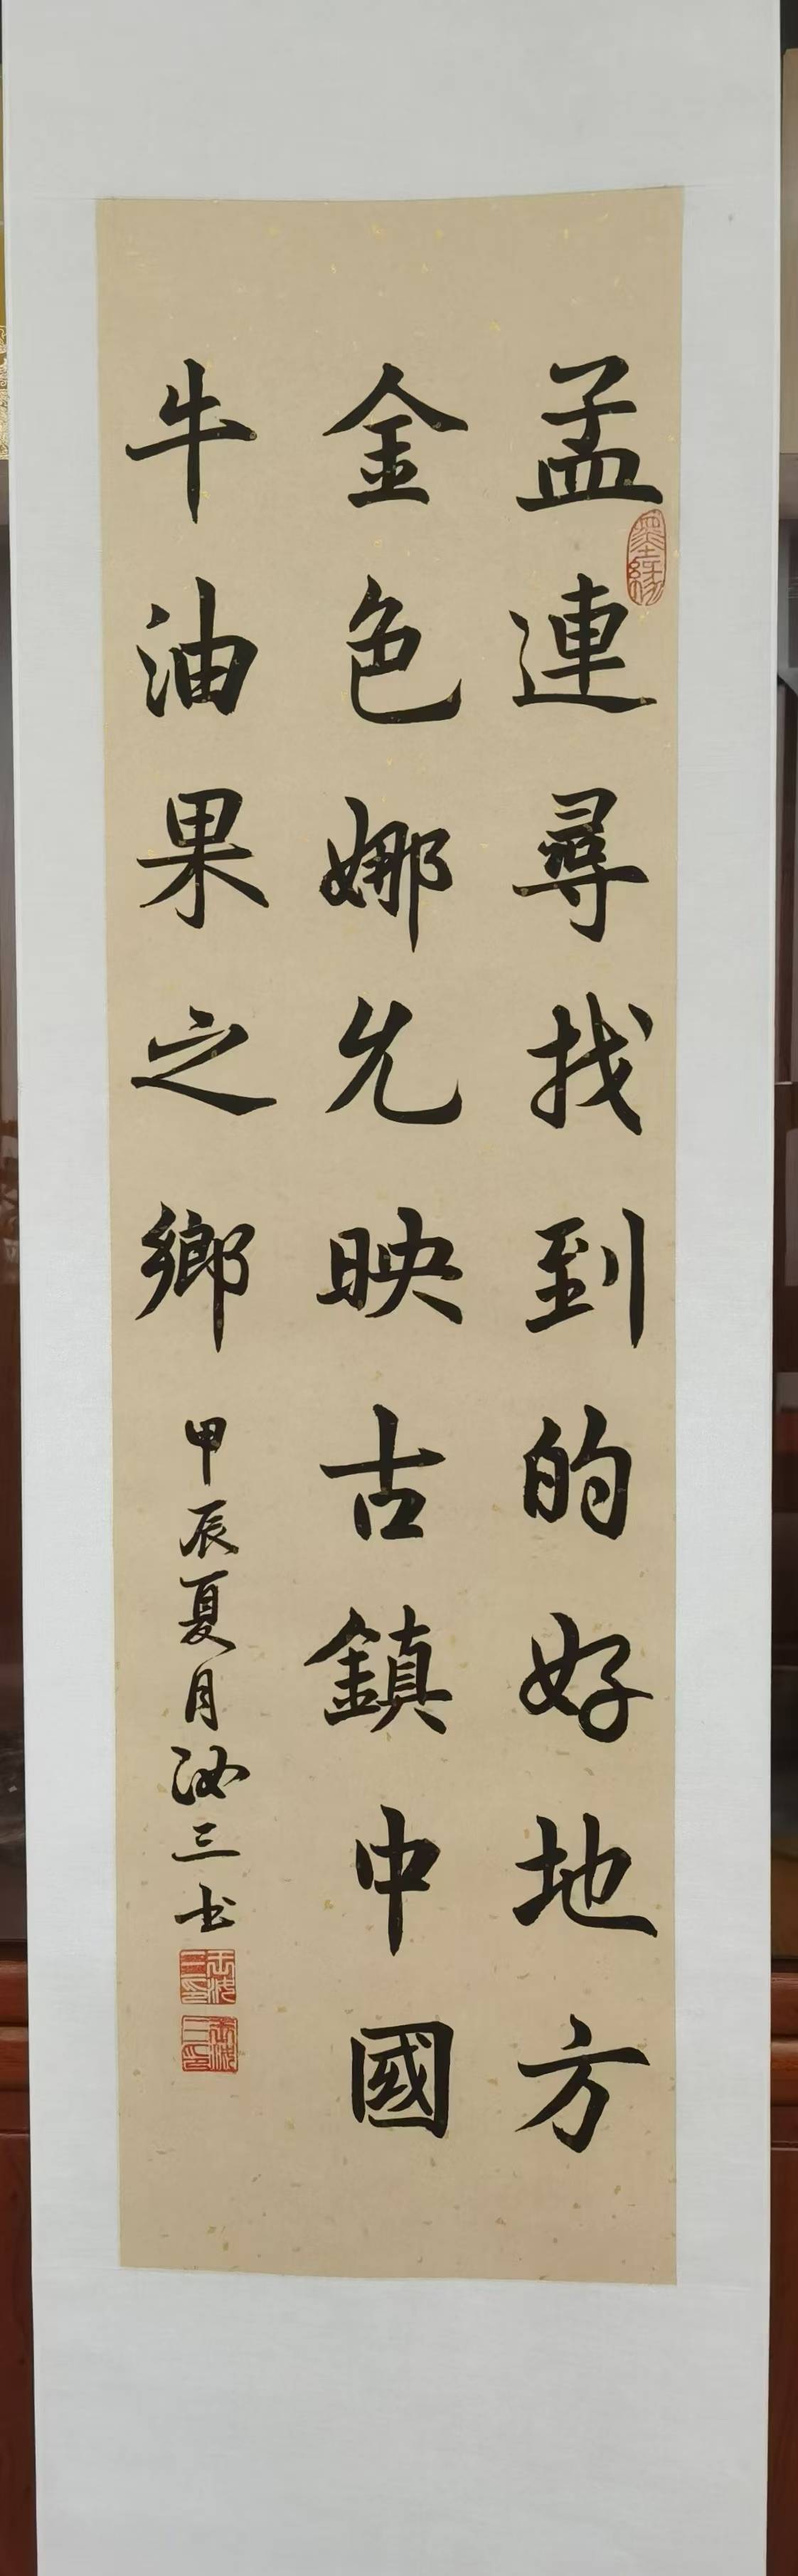 孟連尋找到的好地方
金色娜允映古鎮中國
牛油果之鄉
甲辰夏月汝三书
墨緣